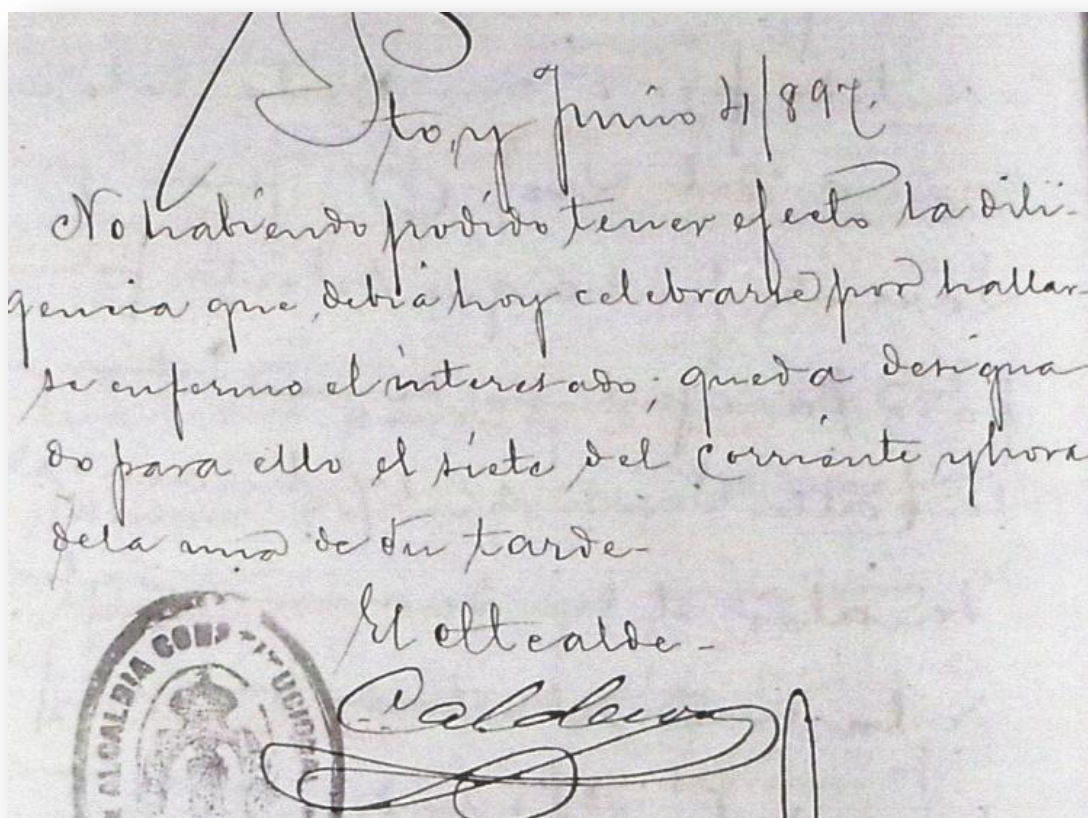 Sto, y Junio 4/897.
No habiendo podido tener efecto la dili-
gencia que debia hoy celebrarse por hallar-
se enfermo el interesado; queda designa
do para ello el siete del corriente y hora
de la una de su tarde-
El Alcalde-
Calderon
ALCALDIA CONSTITUCIONAL